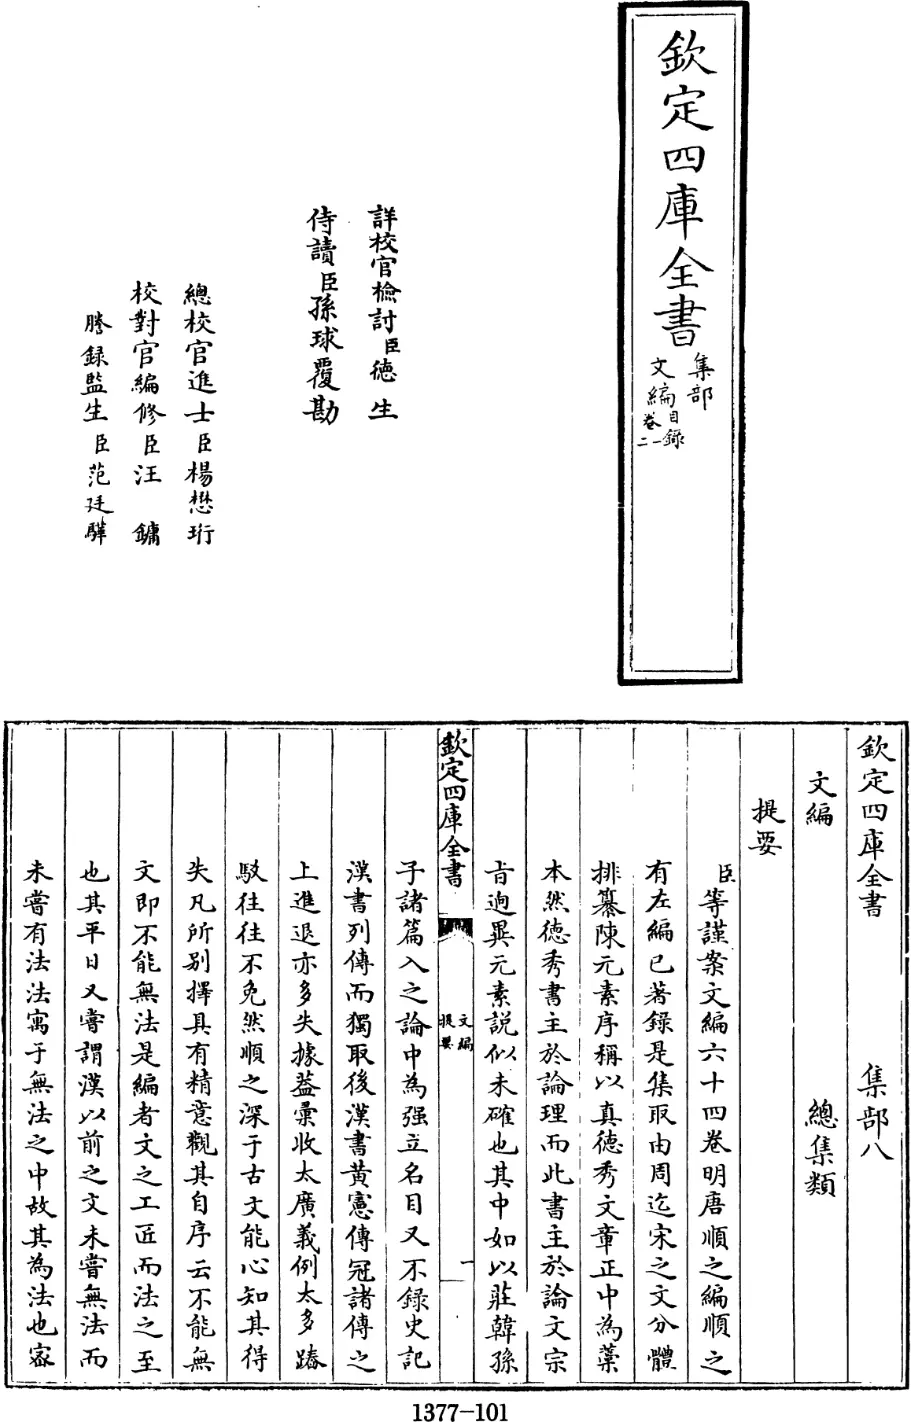 欽定四庫全書
集部
文編目錄
卷一
二
詳校官檢討臣德生
侍讀臣孫球覆勘
總校官進士臣楊懋珩
校對官編修臣汪鏞
謄録監生臣范廷驊
欽定四庫全書 集部八
文編 總集類
提要
臣等謹案文編六十四卷明唐順之編順之
有左編已著錄是集取由周迄宋之文分體
排纂陳元素序稱以真德秀文章正中為藁
本然德秀書主於論理而此書主於論文宗
旨迥異元素說似未確也其中如以莊韓孫
欽定四庫全書
文編
提要
一
子諸篇入之論中為强立名目又不錄史記
漢書列傳而獨取後漢書黄憲傳冠諸傳之
上進退亦多失據葢彙收太廣義例太多踳
駁往往不免然順之深于古文能心知其得
失凡所別擇具有精意觀其自序云不能無
文即不能無法是編者文之工匠而法之至
也其平日又嘗謂漢以前之文未嘗無法而
未嘗有法法寓于無法之中故其為法也宻
1377-101